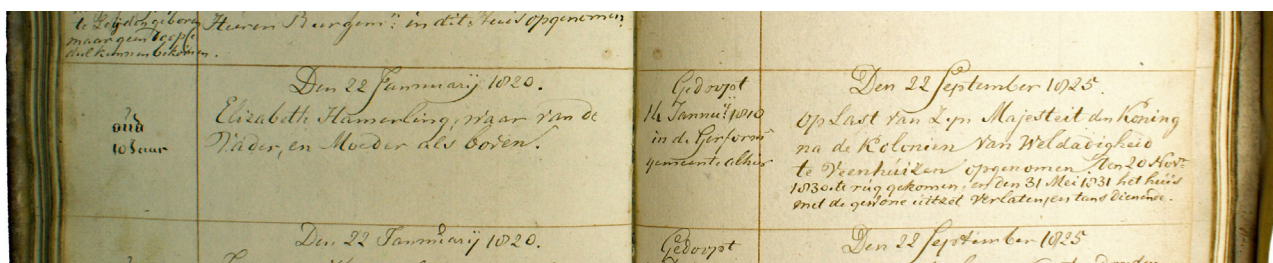 te Leijden geboren
maar geen Doopce
dul kunnen bekomen.
Heeren Burgem:ⁿ in dit Huis opgenomen
Den 22 Januuarij 1820.
oud
10 Jaar
Elizabeth Hamerling, waar van de
Vader, en Moeder als boven.
Gedoopt
14 Januij 1810
in de Gerform:
gemeente alhier
Den 22 September 1825.
op Last van Zyn Majesteit den Koning
na de Kolonien van Weldadigheid
te Veenhuizen opgenomen, den 20 Nov:ʳ
1830 te rug gekomen, en den 31 Mei 1831 het huis
met de gewone uitzet verlaten, en tans dienende.
Den 22 Januuarij 1820.
Gedoopt
Den 22 September 1825